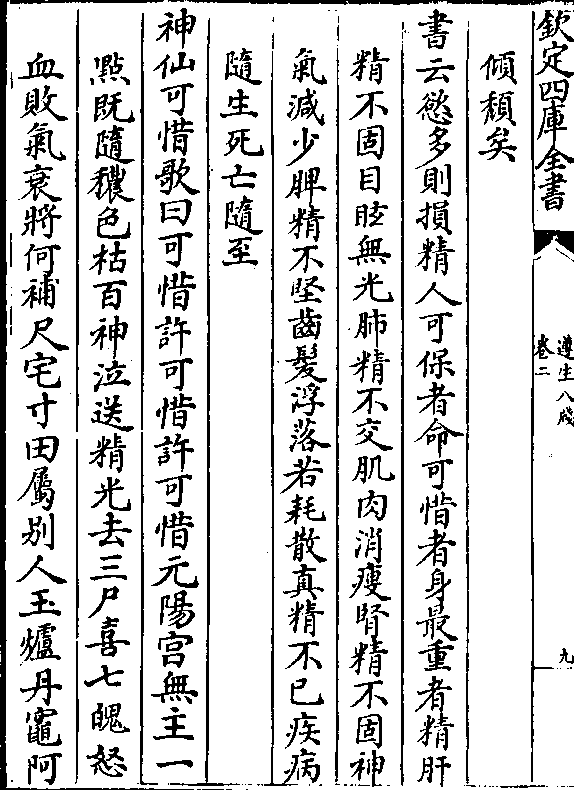 欽定四庫全書
遵生八牋
卷二
九
傾頽矣
書云慾多則損精人可保者命可惜者身最重者精肝
精不固目眩無光肺精不交肌肉消瘦腎精不固神
氣減少脾精不堅齒髮浮落若耗散真精不已疾病
隨生死亡隨至
神仙可惜歌曰可惜許可惜許可惜元陽宫無主一
㸃既隨穠色枯百神泣送精光去三尸喜七魄怒
血敗氣衰將何補尺宅寸田屬别人玉爐丹竈阿